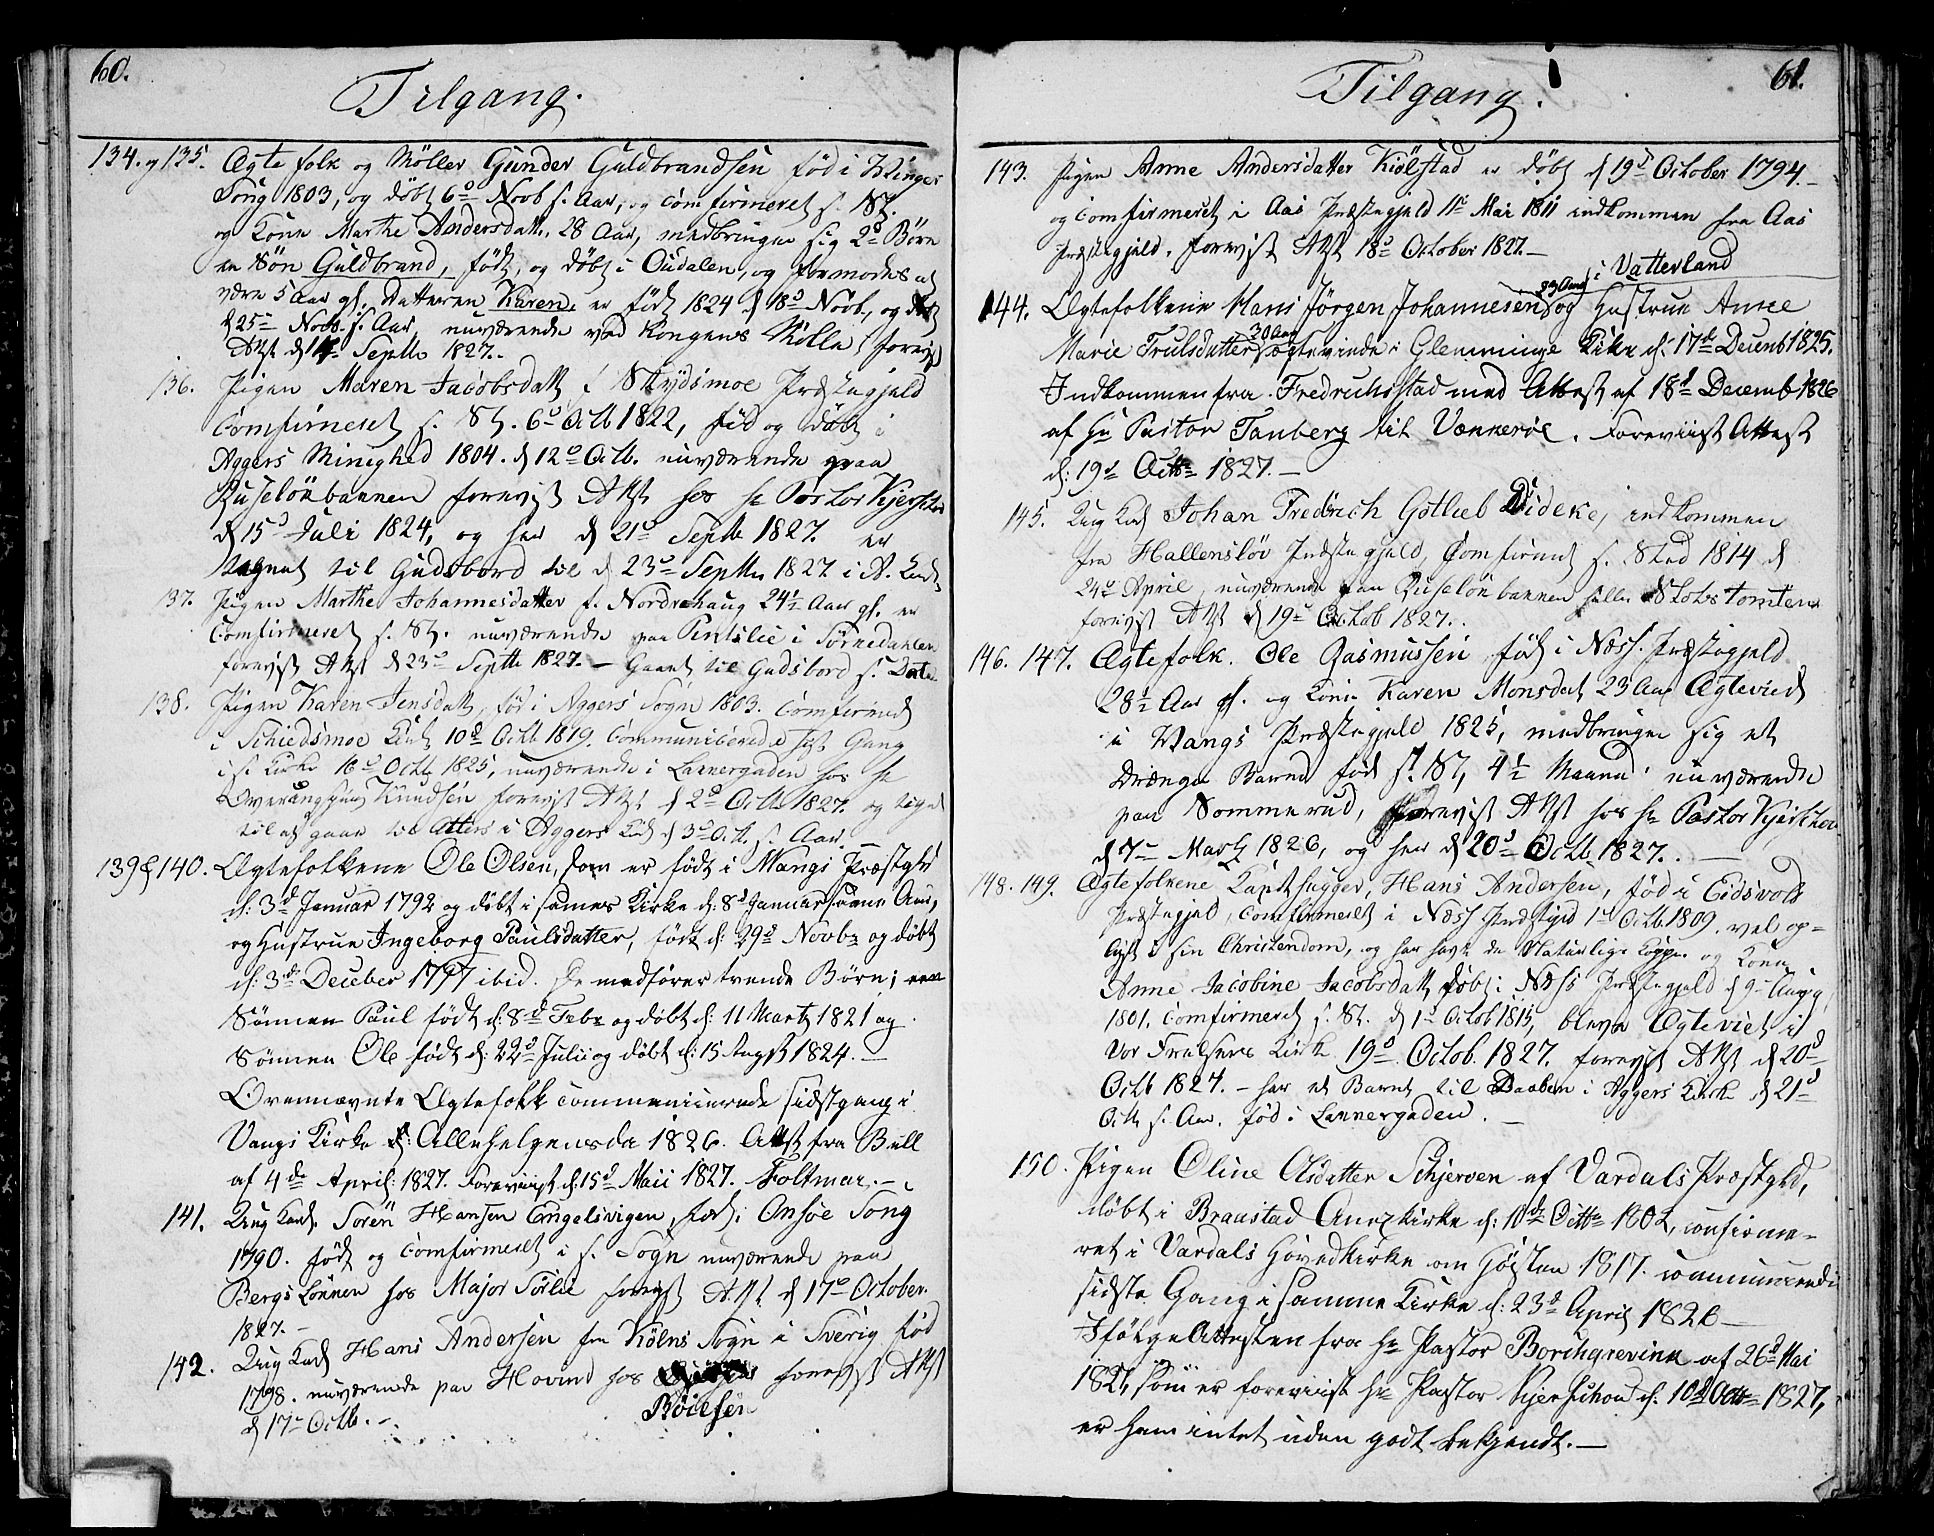 60.
Tilgang.
134. og 135. Ægte folk og Møller Gunder Guldbrandsen fød i
Song 1803, og døbt 6te Novb s. Aar, og Comfirmeret s. St.
og Kone Marthe Andersdatt. 28 Aar, medbringer sig 2de Børn
en Søn Guldbrand, født, og døbt i Oudalen, og formodes at
være 5 Aar gl. Datteren Karen, er født 1824 d 18d Novb., og døbt
d 25de Novb. s. Aar, nuværende ved Kongens Mølle forevist
Attst d 14de Septbr 1827.
136. Pigen Maren Jacobsdatt. f. Skydsmoe Præstegjeld
Comfirmeret s. St. 6te Octb 1822, fød og døbt i
Aggers Minighed 1804. d 12te Octb. nuværende paa
Ruseløkbannen forevist Attst hos Hr Pastor
d 15d Juli 1824, og her d 21de Septb 1827. er
tegnet til Gudsbord til d 23de Septbr 1827 i A. Kirk
137. Pigen Marthe Johannesdatter f. Nordrehaug 24½ Aar gl. er
Comfirmeret s. St. nuværende paa i Sørkedahlen
forevist Attst d 23de Septbr 1827. – Gaaet til Gudsbord s. Dato
138. Pigen Karen Jensdatt, fød i Aggers Sogn 1803. Comfirmed
i Schiedsmoe Kirk 10de Octb 1819. Communiserede sist Gang
i s. Kirke 16de Octb 1825, nuværende i Lakkergaden hos Hr
Knudsen forevist Attst d 2de Octb 1827. og
til at gaae til Alters i Aggers Kirk d 3de Oct. s. Aar.
139 & 140. Ægtefolkene Ole Olsen, som er født i Wangs Præstgld
d: 3d Januar 1792 og døbt i sammes Kirke d: 8d Januar samme Aar,
og Hustrue Ingeborg Paulsdatter, født d: 29d Novbr og døbt
d: 3de December 1797 ibid. De medfører trende Børn;
Sønnen Paul født d: 8d Febr og døbt d: 11 Martz 1821 og
Sønnen Ole født d: 22d Julii og døbt d: 15 Augst 1824. –
Ovennævnte Ægtefolk communicerede sidstgang i
Vangs Kirke d: Allehelgensda 1826. Attst fra Bull
af 4de April: 1827. Foreviist d: 15d Maii 1827. Foltmar. –
141. Ung Karl. Søren Hansen Engelsvigen, fød i Onsøe Song
1790. født og Comfirmeret i s. Sogn nuværende paa
Bergs Lønnen hos Major Sørlie forevist Attst d 17de October
1827. –
142. Ung Karl Hans Andersen fra Kölns Sogn i Sverig fød
1798. nuværende paa Hovind hos forevist Attst
d 17de Octb. –
Röiesen
61.
Tilgang.
143. Pigen Anne Andersdatter Kiølstad er døbt d 19d October 1794. –
og Comfirmeret i Aas Præstegjeld 11te Mai 1811 indkommen fra Aas
Præstegjeld. forevist Attst 18d October 1827. –
i Vatterland
144. Ægtefolkene Hans Jörgen Johannesen og Hustrue Anne
Marie Trulsdatter 30 Aar ægteviede i Glemminge Kirke d: 17de Decemb 1825.
Indkommen fra Fredrichsstad med Attest af 18d Decemb 1826
af Hr Pastor Tanberg til Vækkerøe. Foreviist Attest
d: 19d Octbr 1827. –
145. Ung Karl Johan Fredrich Gotlieb Dideke, indkommen
fra Hallensløv Præstegjeld, Comfirmet s. Sted 1814 d
24de April, nuværende paa Ruseløkbannen Stokstomten
forevist Attst d 19de Octob 1827.
146. 147. Ægtefolk. Ole Rasmussen, født i Næss. Præstegjeld
28½ Aar gl. og Kone Karen Monsdat 23 Aar Ægteviet
i Wangs Præstegjeld 1825, medbringer sig et
Drænge Barn fød s. St, 4½ Maaned. nuværende
paa Sommerud, forevist Attst hos Hr Pastor
d 7de Martz 1826, og her d 20d Octb. 1827. –
148. 149. Ægtefolkene Hans Andersen, fød i Eidsvols
Præstegjeld, Comfirmeret i Næss Præstgjeld 1te Octb. 1809. vel op-
lyst i sin Christendom, og har havt de Naturlige Kopper og Kone
Anne Jacobine Jacobsdatt, døbt i Næss Præstegjeld d 9de Aug
1801. Comfirmeret s. St. d 1te Octob 1815, bleven Ægteviet i
Vor Frelsers Kirk 19d Octob. 1827. forevist Attst d 20d
Octb 1827. – har et Barn til Daaben i Aggers Kirk d 21d
Octb s. Aar. fød i Lakkergaden. –
150. Pigen Oline Olsdatter Schjerven af Vardals Præstgld,
døbt i Braastad Annexkirke d: 10de Octbr 1802, confirme-
ret i Vardals Hovedkirke om Høsten 1817. communicerede
sidste Gang i samme Kirke d: 23d April 1826 –
Ifølge Attesten fra Hr Pastor Borchgrevink af 26d Mai
1826, som er foreviist Hr Pastor d: 10d Octbr 1827,
er ham intet uden godt bekjendt. –